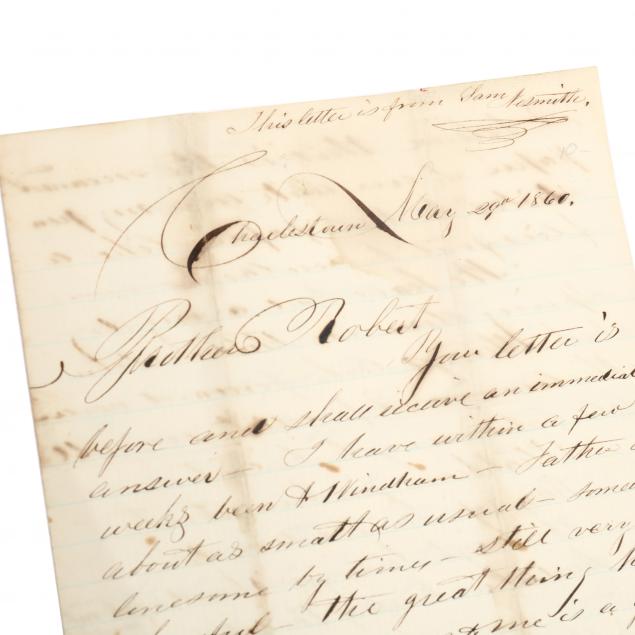 This letter is from Sam Nesmith.
Charlestown May 29th 1860.
Brother Robert
Your letter is
before and shall receive an immediat
answer - I have within a few
weeks been to Windham - Father
about as smart as usual - some
lonesome by times - still very
the great thing
me is a